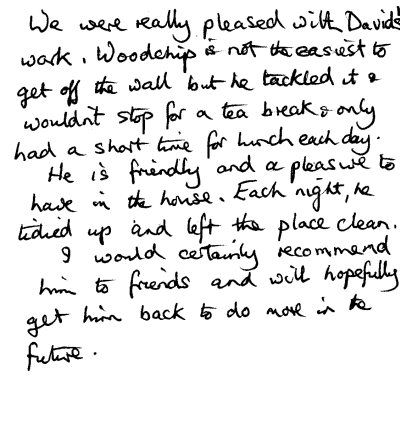 We were really pleased with David's
work. Woodchip is not the easiest to
get off the wall but he tackled it &
wouldn't stop for a tea break & only
had a short time for lunch each day.
He is friendly and a pleasure to
have in the house. Each night, he
tidied up and left the place clean.
I would certainly recommend
him to friends and will hopefully
get him back to do more in the
future.